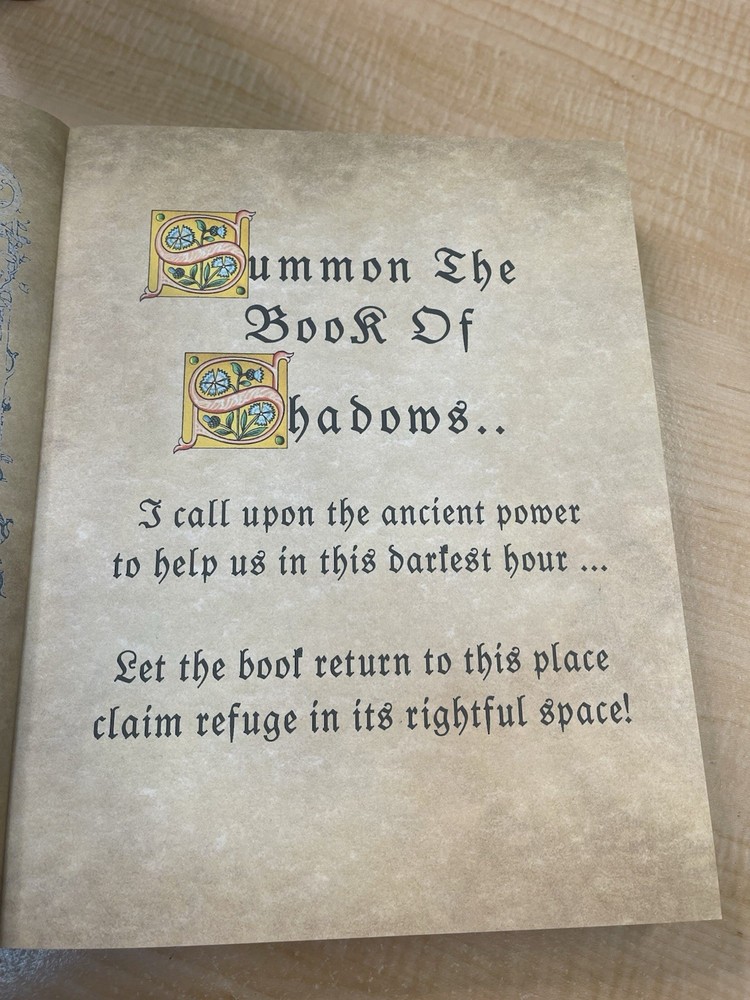 Summon The
BooK Of
Shadows..
I call upon the ancient power
to help us in this darkest hour ...
Let the book return to this place
claim refuge in its rightful space!